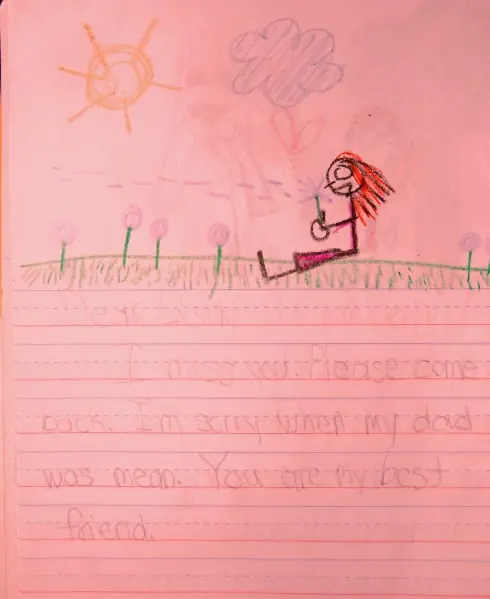 Dear
I miss you. Please come
back. I'm sorry when my dad
was mean. You are my best
friend.